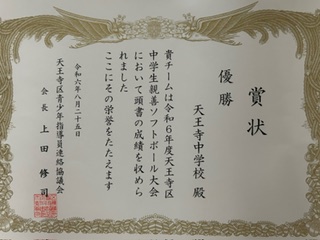 賞状
優勝
天王寺中学校 殿
貴チームは令和6年度天王寺区
中学生親善ソフトボール大会
において頭書の成績を収めら
れました
ここにその栄誉をたたえます
令和六年八月二十五日
天王寺区青少年指導員連絡協議会
会長 上田 修司